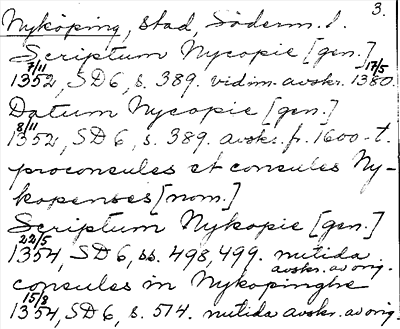 3.
Nyköping, stad, Söderm. l.
Scriptum Nycopie [gen.]
7/11 1352, SD 6, s. 389. vidim. avskr. 17/5 1380.
Datum Nycopie [gen.]
8/11 1352, SD 6, s. 389. avskr. fr. 1600-t.
proconsules et consules Ny-
kopenses [nom.]
Scriptum Nykopie [gen.]
22/5 1354, SD 6, ss. 498, 499. nutida
avskr. av orig.
consules in Nykopinghe
15/8 1354, SD 6, s. 514. nutida avskr. av orig.